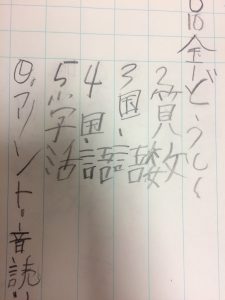 10金1どうとく
2算数
3国語
4国語
5学活
◎プリント・音読